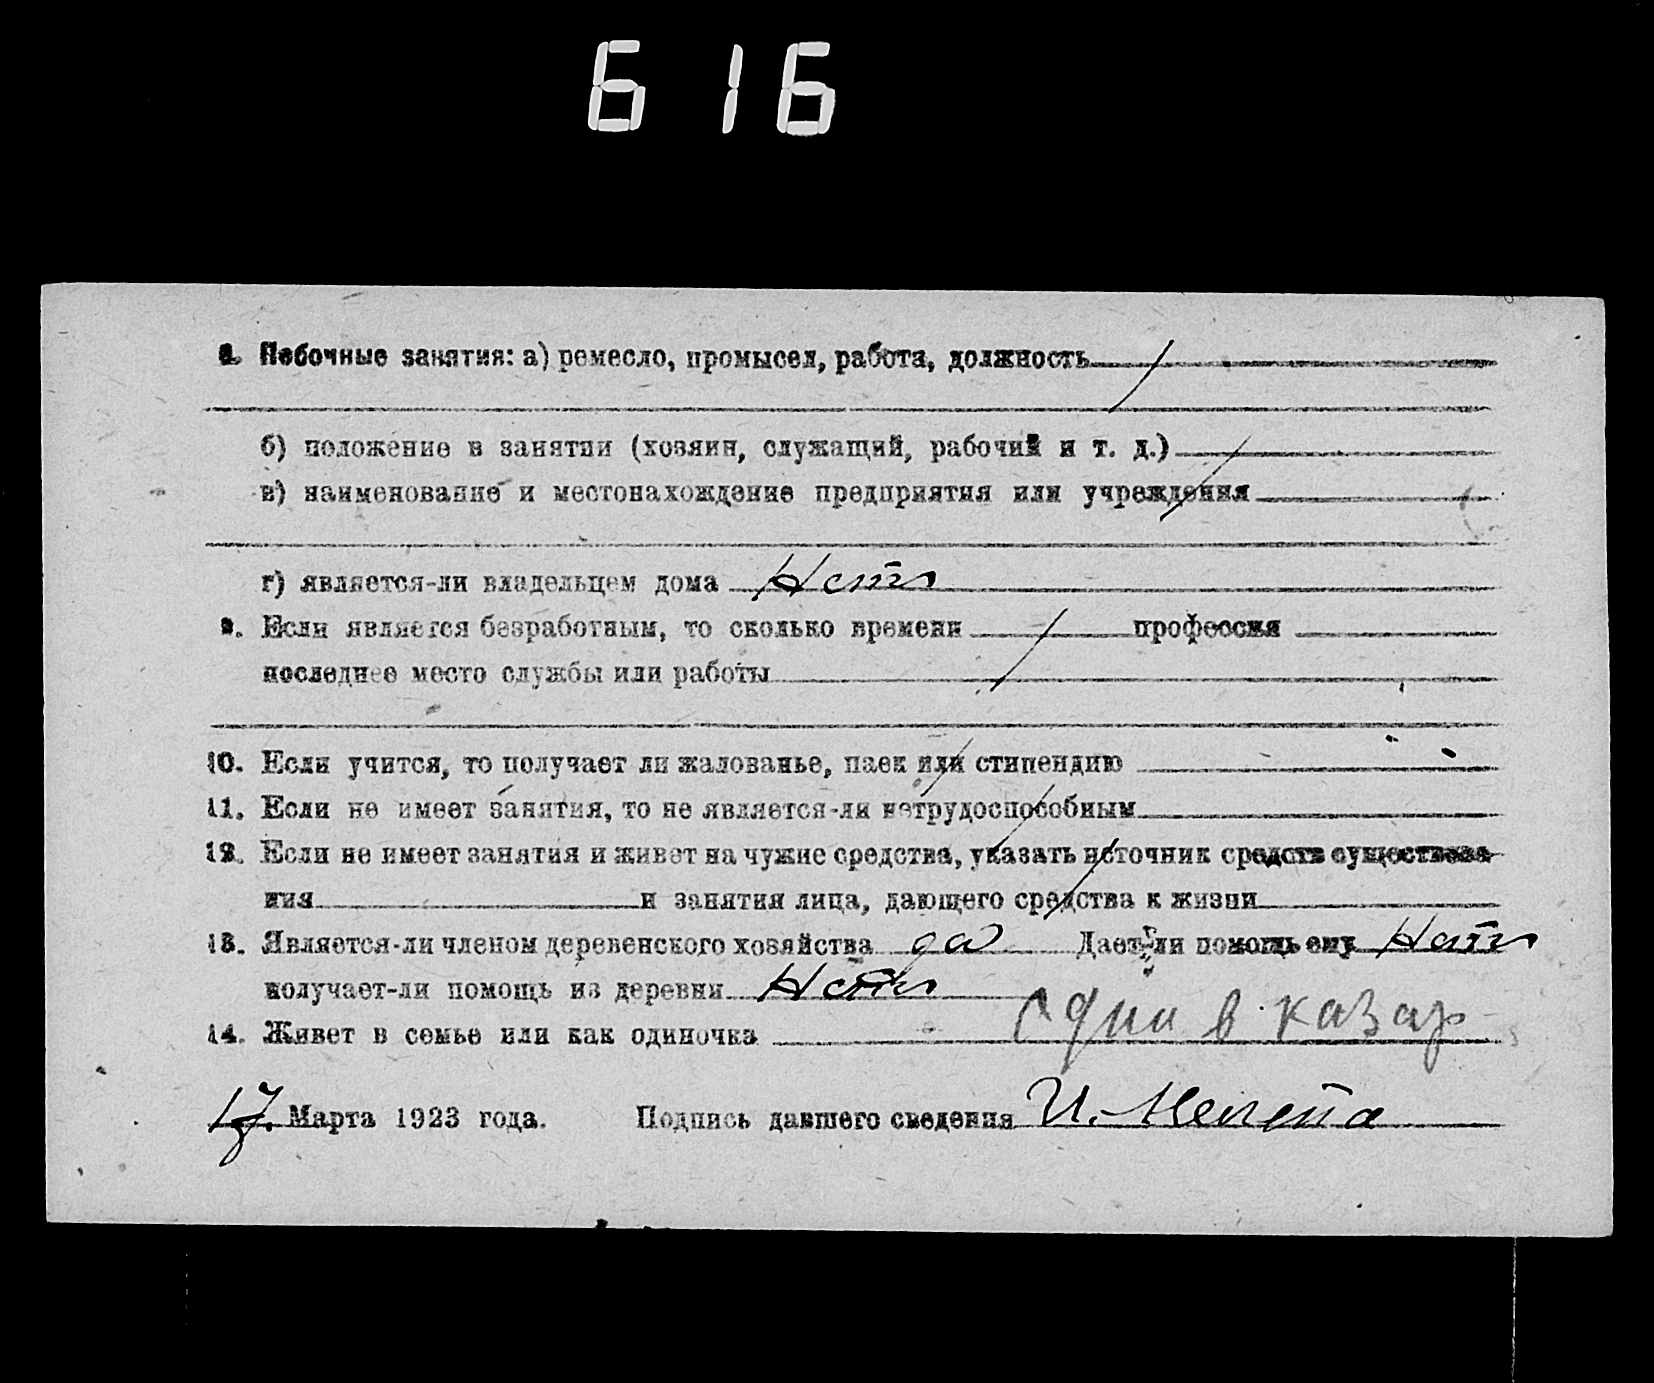 616
8. Побочные занятия: а) ремесло, промысел, работа, должность
б) положение в занятии (хозяин, служащий, рабочий и т. д.)
в) наименование и местонахождение предприятия или учреждения
г) является-ли владельцем дома Нетъ
9. Если является безработным, то сколько времени профессия
последнее место службы или работы
10. Если учится, то получает ли жалованье, паек или стипендию
11. Если не имеет занятия, то не является-ли нетрудоспособным
12. Если не имеет занятия и живет на чужие средства, указать источник средств существова-
ния и занятия лица, дающего средства к жизни
13. Является-ли членом деревенского хозяйства да Дает-ли помощь ему Нетъ
получает-ли помощь из деревни Нетъ
14. Живет в семье или как одиночка один в казар
17. Марта 1923 года. Подпись давшего сведения И.